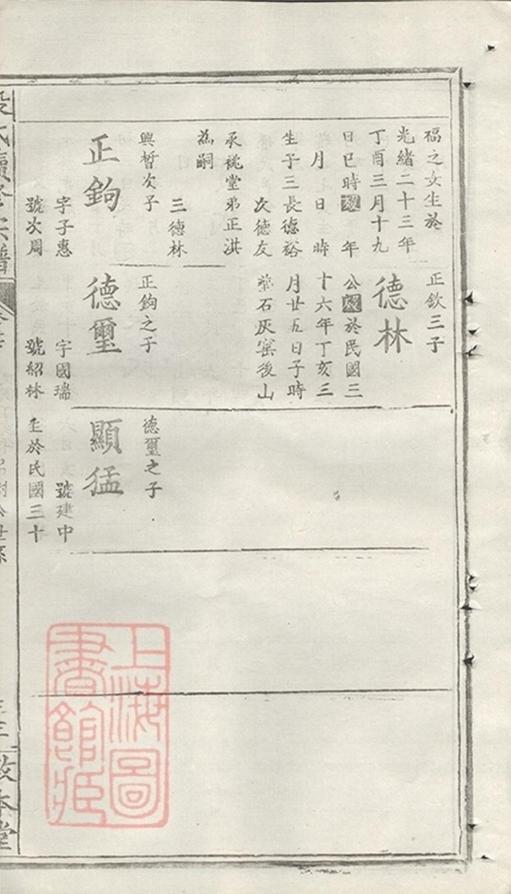 福之女生於
光緒二十三年
丁酉三月十九
日巳時 年
月 日 時
生子三長德裕
次德友
三德林
承祧堂弟正淇
為嗣
正鈞
興哲次子
字子惠
號次周
德林
正欽三子
公 於民國三
十六年丁亥三
月廿五日子時
葬石灰窑後山
德璽
正鈞之子
字國瑞
號紹林
顯猛
德璽之子
號建中
生於民國三十
氏續修宗譜
敦本堂
上海圖
書館藏